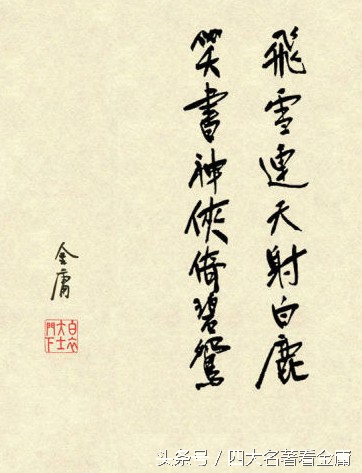 飛雪連天射白鹿
笑書神俠倚碧鴛
金庸
白衣
大士
門下
头条号 / 四大名著看金庸